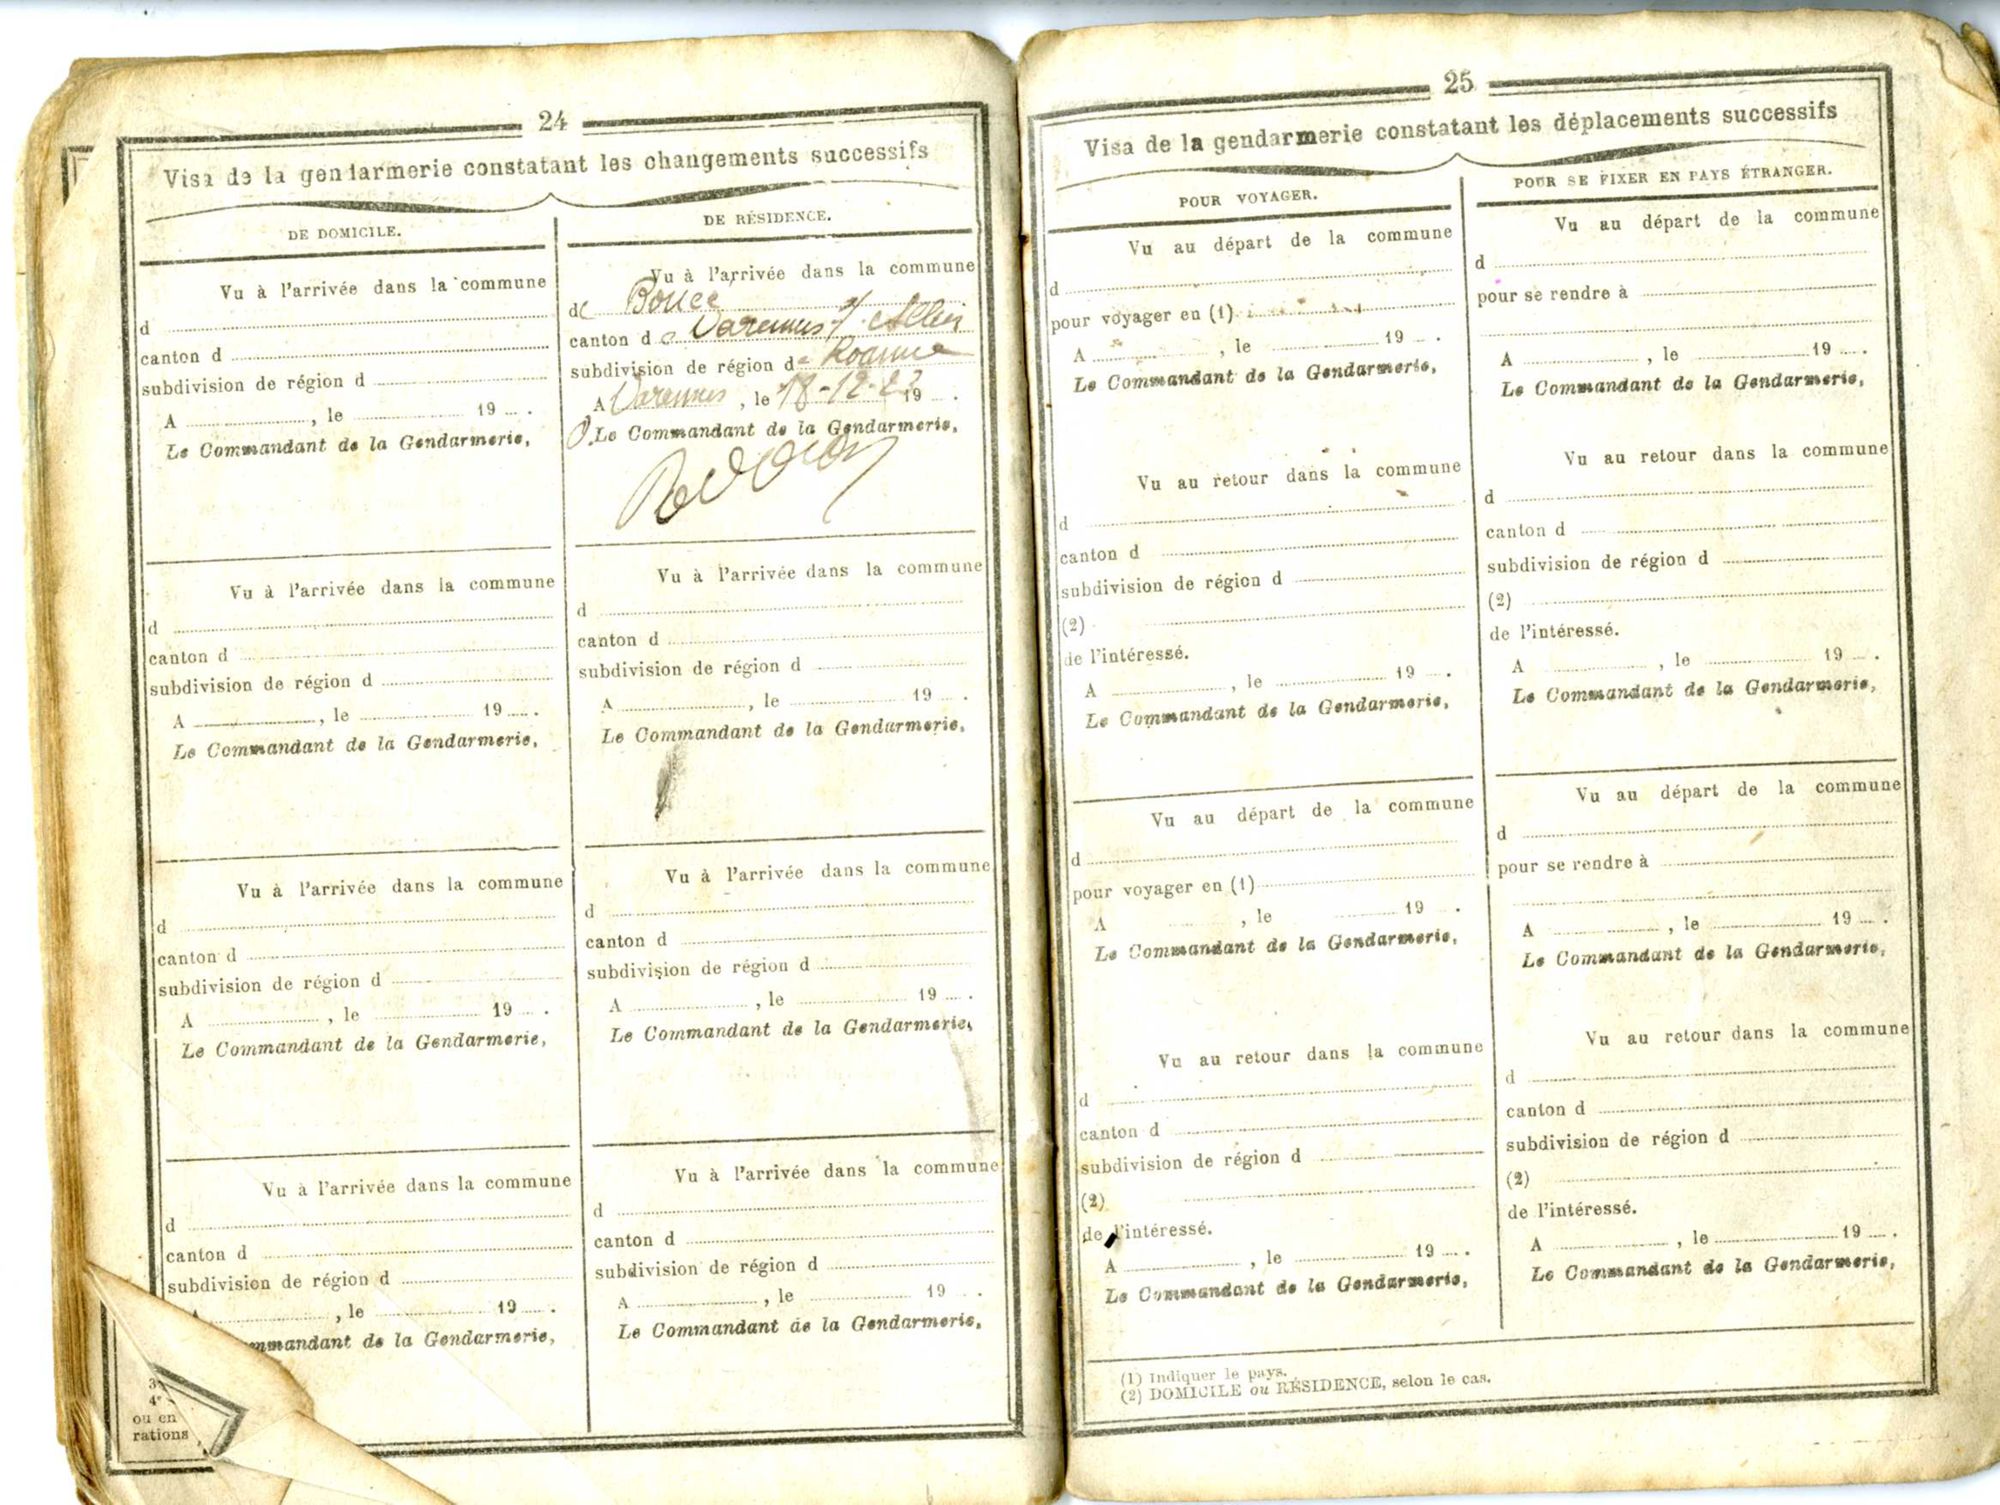 24
Visa de la gendarmerie constatant les changements successifs
DE DOMICILE.
Vu à l'arrivée dans la commune
d
canton d
subdivision de région d
A , le 19 .
Le Commandant de la Gendarmerie,
Vu à l'arrivée dans la commune
d
canton d
subdivision de région d
A , le 19 .
Le Commandant de la Gendarmerie,
Vu à l'arrivée dans la commune
d
canton d
subdivision de région d
A , le 19 .
Le Commandant de la Gendarmerie,
Vu à l'arrivée dans la commune
d
canton d
subdivision de région d
A , le 19 .
mmandant de la Gendarmerie,
DE RÉSIDENCE.
Vu à l'arrivée dans la commune
de Boucé
canton de Varennes s/ Allier
subdivision de région de Roanne
A Varennes, le 18-12-22 19 .
Le Commandant de la Gendarmerie,
Vu à l'arrivée dans la commune
d
canton d
subdivision de région d
A , le 19 .
Le Commandant de la Gendarmerie,
Vu à l'arrivée dans la commune
d
canton d
subdivision de région d
A , le 19 .
Le Commandant de la Gendarmerie,
Vu à l'arrivée dans la commune
d
canton d
subdivision de région d
A , le 19 .
Le Commandant de la Gendarmerie,
3e
4e
ou en
rations
25
Visa de la gendarmerie constatant les déplacements successifs
POUR VOYAGER.
Vu au départ de la commune
d
pour voyager en (1)
A , le 19 .
Le Commandant de la Gendarmerie,
Vu au retour dans la commune
d
canton d
subdivision de région d
(2)
de l'intéressé.
A , le 19 .
Le Commandant de la Gendarmerie,
Vu au départ de la commune
d
pour voyager en (1)
A , le 19 .
Le Commandant de la Gendarmerie,
Vu au retour dans la commune
d
canton d
subdivision de région d
(2)
de l'intéressé.
A , le 19 .
Le Commandant de la Gendarmerie,
POUR SE FIXER EN PAYS ÉTRANGER.
Vu au départ de la commune
d
pour se rendre à
A , le 19 .
Le Commandant de la Gendarmerie,
Vu au retour dans la commune
d
canton d
subdivision de région d
(2)
de l'intéressé.
A , le 19 .
Le Commandant de la Gendarmerie,
Vu au départ de la commune
d
pour se rendre à
A , le 19 .
Le Commandant de la Gendarmerie,
Vu au retour dans la commune
d
canton d
subdivision de région d
(2)
de l'intéressé.
A , le 19 .
Le Commandant de la Gendarmerie,
(1) Indiquer le pays.
(2) DOMICILE ou RÉSIDENCE, selon le cas.